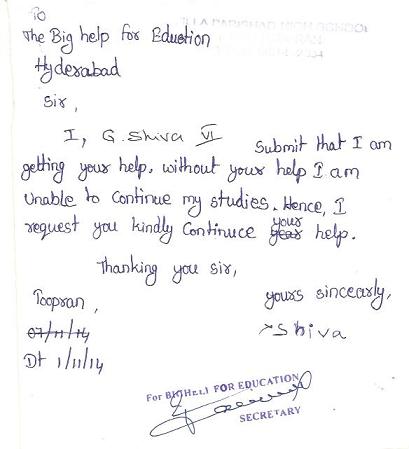 To
The Big help for Eduction
Hyderabad
Sir,
I, G. Shiva VI Submit that I am
getting your help, without your help I am
unable to continue my studies. Hence, I
request you kindly continuce your help.
Thanking you sir,
Toopran, yours sincearly,
07/11/14 Shiva
Dt 1/11/14
For BIGHELP FOR EDUCATION
SECRETARY